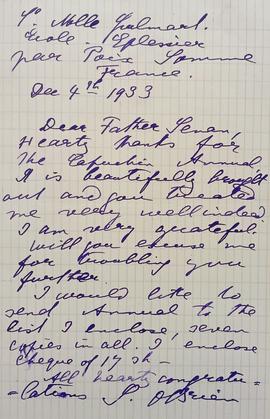 Mlle Galmart.
École - Eplessier
par Poix Somme
France.
Dec 4th 1933
Dear Father Senan,
Hearty thanks for
the Capuchin Annual
It is beautifully brought
out and you treated
me very well indeed
I am very grateful.
Will you excuse me
for troubling you
further.
I would like to
send Annual to the
list I enclose, seven
copies in all. I enclose
cheque of 17 sh -
All hearty congratu=
=lations S. O'Brien